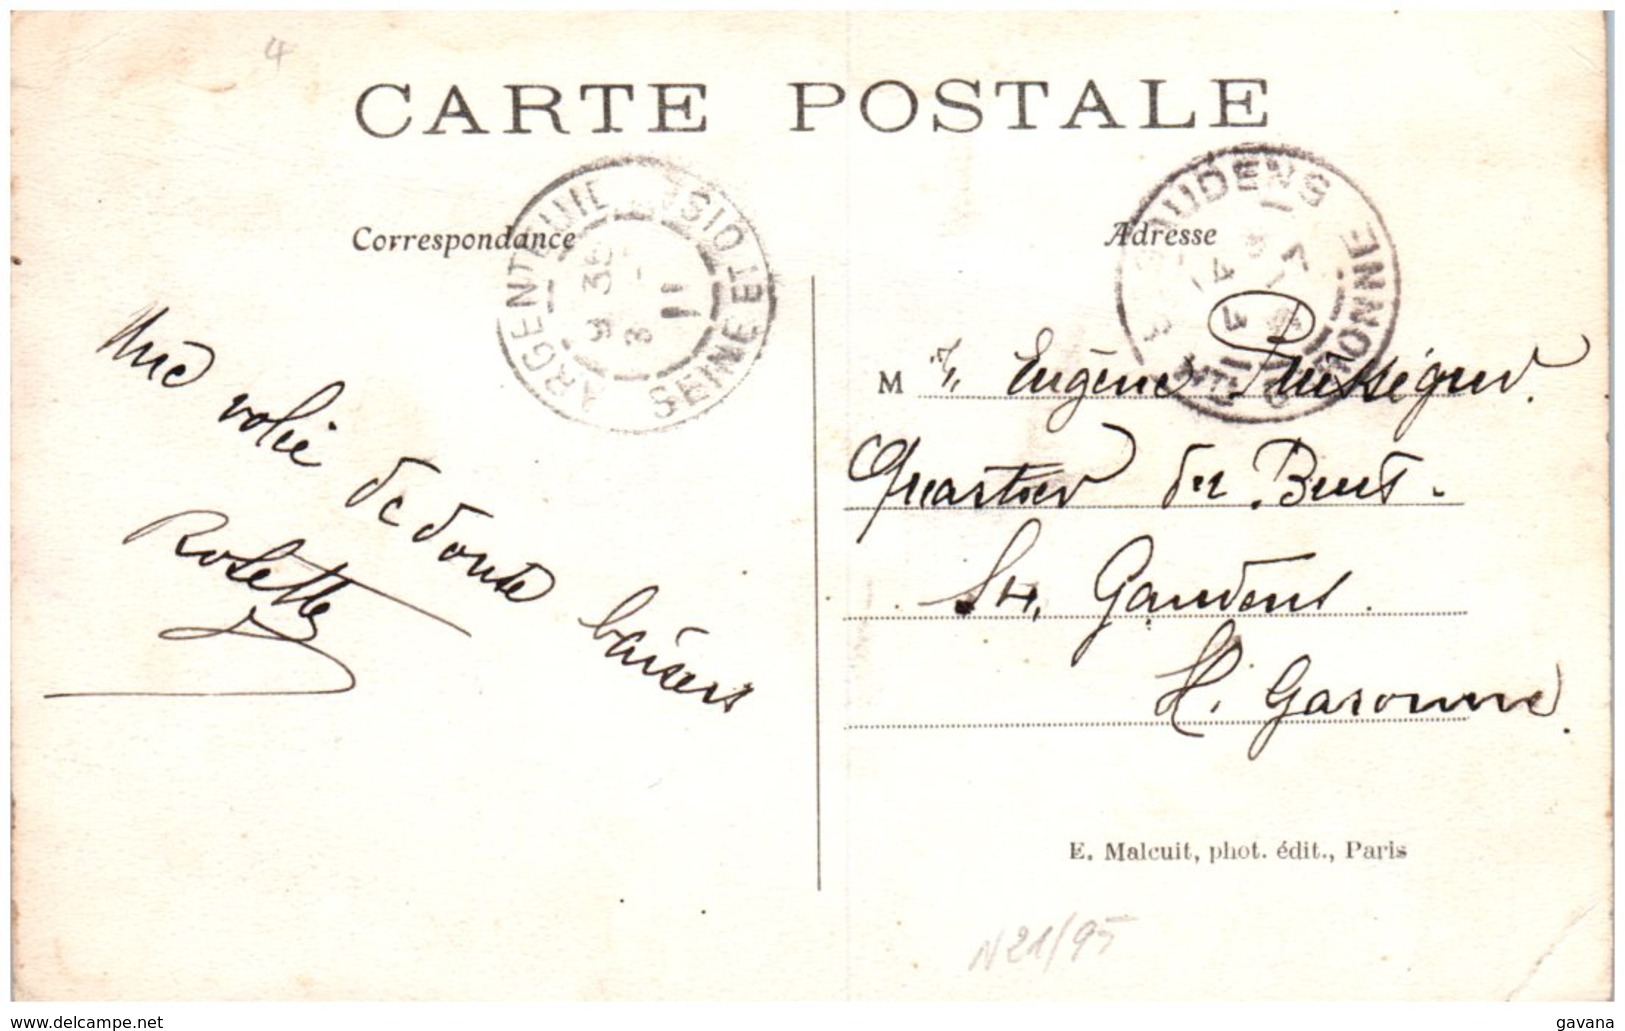 4
CARTE POSTALE
ARGENTEUIL
SEINE ET OISE
9 35
3
11
GAUDENS
GARONNE
Correspondance
Adresse
Une volée de doux baisers
Rosette
M r. Eugène
Quartier du
St. Gaudens
H. Garonne
E. Malcuit, phot. édit., Paris
N21/95
www.delcampe.net
gavana